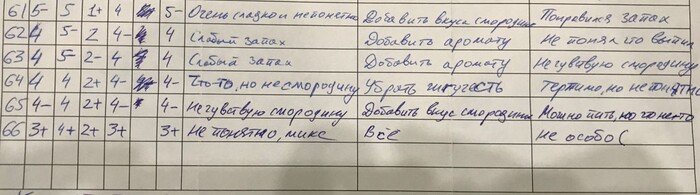 61 5- 5 1+ 4 5- Очень сладкой и непонятно Добавить вкуса смородины Понравился запах
62 4 5- 2 4- 4 Слабый запах Добавить аромату Не понял что выпил
63 4 5- 2- 4- 4 Слабый запах Добавить аромату Не чувствую смородину
64 4 4 2+ 4- 4- Что-то, но не смородину Убрать жгучесть Терпимо, но не понятно
65 4- 4 2+ 4- 4- Не чувствую смородину Добавить вкус смородины Можно пить, но
66 3+ 4+ 2+ 3+ 3+ Не понятно, микс Всё Не особо(